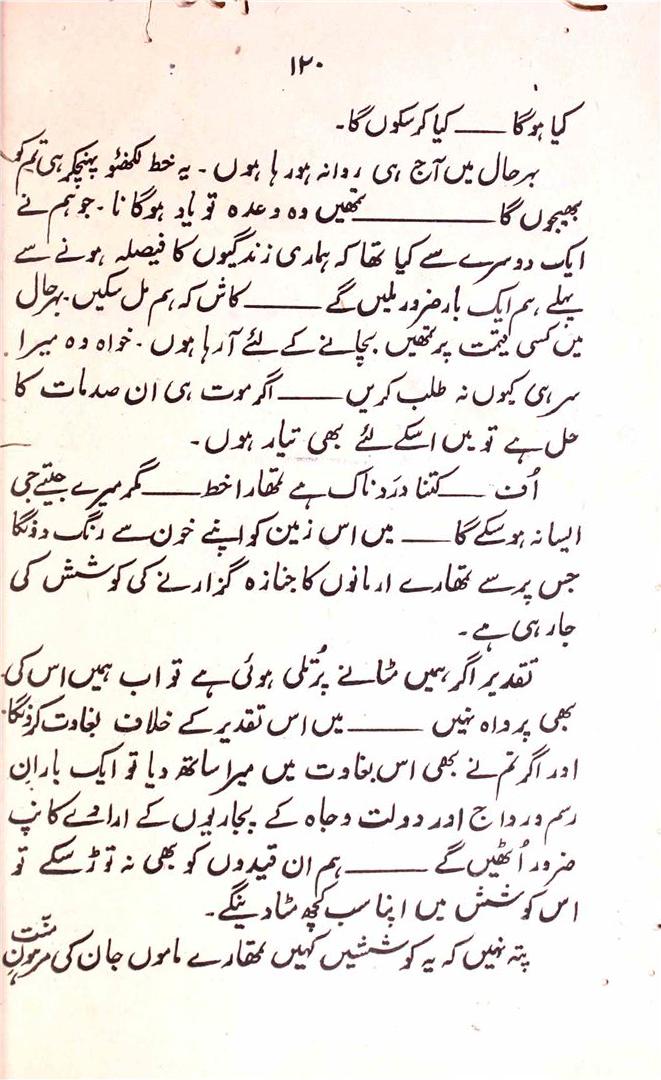 ۱۲۰
کیا ہوگا ــــــ کیا کرسکوں گا۔
بہرحال میں آج ہی روانہ ہورہا ہوں۔ یہ خط لکھنؤ پہنچکر ہی تم کو
بھیجوں گا ــــــــــــ تمھیں وہ وعدہ تو یاد ہوگا نا۔ جو ہم نے
ایک دوسرے سے کیا تھا کہ ہماری زندگیوں کا فیصلہ ہونے سے
پہلے ہم ایک بار ضرور ملیں گے ــــــ کاش کہ ہم مل سکیں۔ بہرحال
میں کسی قیمت پر تمھیں بچانے کے لئے آرہا ہوں۔ خواہ وہ میرا
سر ہی کیوں نہ طلب کریں ــــــ اگر موت ہی ان صدمات کا
حل ہے تو میں اسکے لئے بھی تیار ہوں۔
اُف ــــــ کتنا دردناک ہے تمھارا خط ــــــ مگر میرے جیتے جی
ایسا نہ ہوسکے گا ــــــ میں اس زمین کو اپنے خون سے رنگ دونگا
جس پر سے تمھارے ارمانوں کا جنازہ گزارنے کی کوشش کی
جارہی ہے۔
تقدیر اگر ہمیں مٹانے پر تُلی ہوئی ہے تو اب ہمیں اس کی
بھی پرواہ نہیں ــــــ میں اس تقدیر کے خلاف بغاوت کرونگا
اور اگر تم نے بھی اس بغاوت میں میرا ساتھ دیا تو ایک بار ان
رسم و رواج اور دولت و جاہ کے پجاریوں کے ارادے کانپ
ضرور اُٹھیں گے ــــــ ہم ان قیدوں کو بھی نہ توڑ سکے تو
اس کوشش میں اپنا سب کچھ مٹادینگے۔
پتہ نہیں کہ یہ کوششیں کہیں تمھارے ماموں جان کی مرہونِ منّت